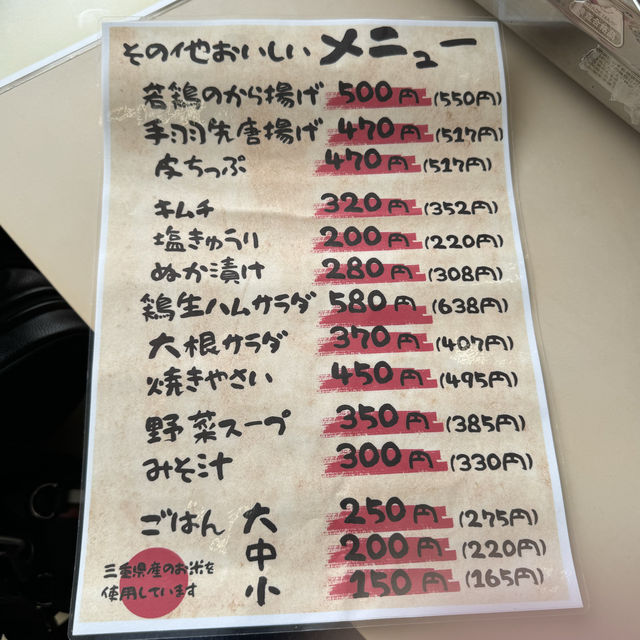 その他おいしいメニュー
若鶏のから揚げ 500円 (550円)
手羽先唐揚げ 470円 (517円)
皮ちっぷ 470円 (517円)
キムチ 320円 (352円)
塩きゅうり 200円 (220円)
ぬか漬け 280円 (308円)
鶏生ハムサラダ 580円 (638円)
大根サラダ 370円 (407円)
焼きやさい 450円 (495円)
野菜スープ 350円 (385円)
みそ汁 300円 (330円)
ごはん 大 250円 (275円)
中 200円 (220円)
小 150円 (165円)
三重県産のお米を
使用しています